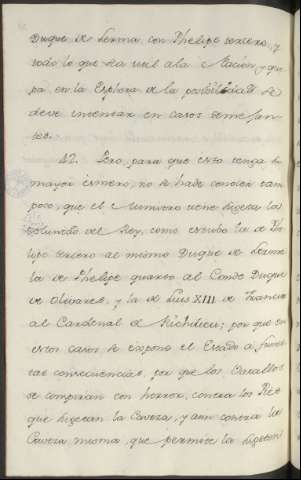 Duque de Lerma, con Phelipe tercero, y
todo lo que sea util ala Nacion, y que
pa en la Esphera de la posibilidad se
deve intentar en casos seme jan-
tes.
42. Pero para que esto tenga su
mayor esmero, no se hade conocer tam
poco, que el Ministro tiene sugeta la
voluntad del Rey, como estubo la de Phe
lipe tercero al mismo Duque de Lerma
la de Phelipe quarto al Conde Duque
de Olivares, y la de Luis XIII de Francia
al Cardenal de Richilieu; por que en
estos casos se expone el Estado a funes
tas consecuencias, por que los Vasallos
se conspiran con horror, contra los Pies
que sugetan la Caveza, y aun contra la
Caveza misma, que permite la sugecion